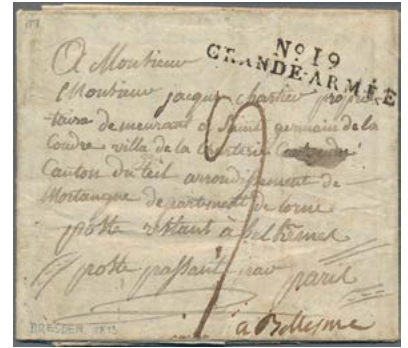 No. 19
GRANDE-ARMÉE
A Monsieur
Monsieur jacque chartier propri
-taire demeurant a Saint germain de la
Coudre villa de la
Canton du teil arrondissement de
Mortangne departement de lorne
poste restant à belhemes
poste passant par paris
a Bellesme
DRESDEN 1813